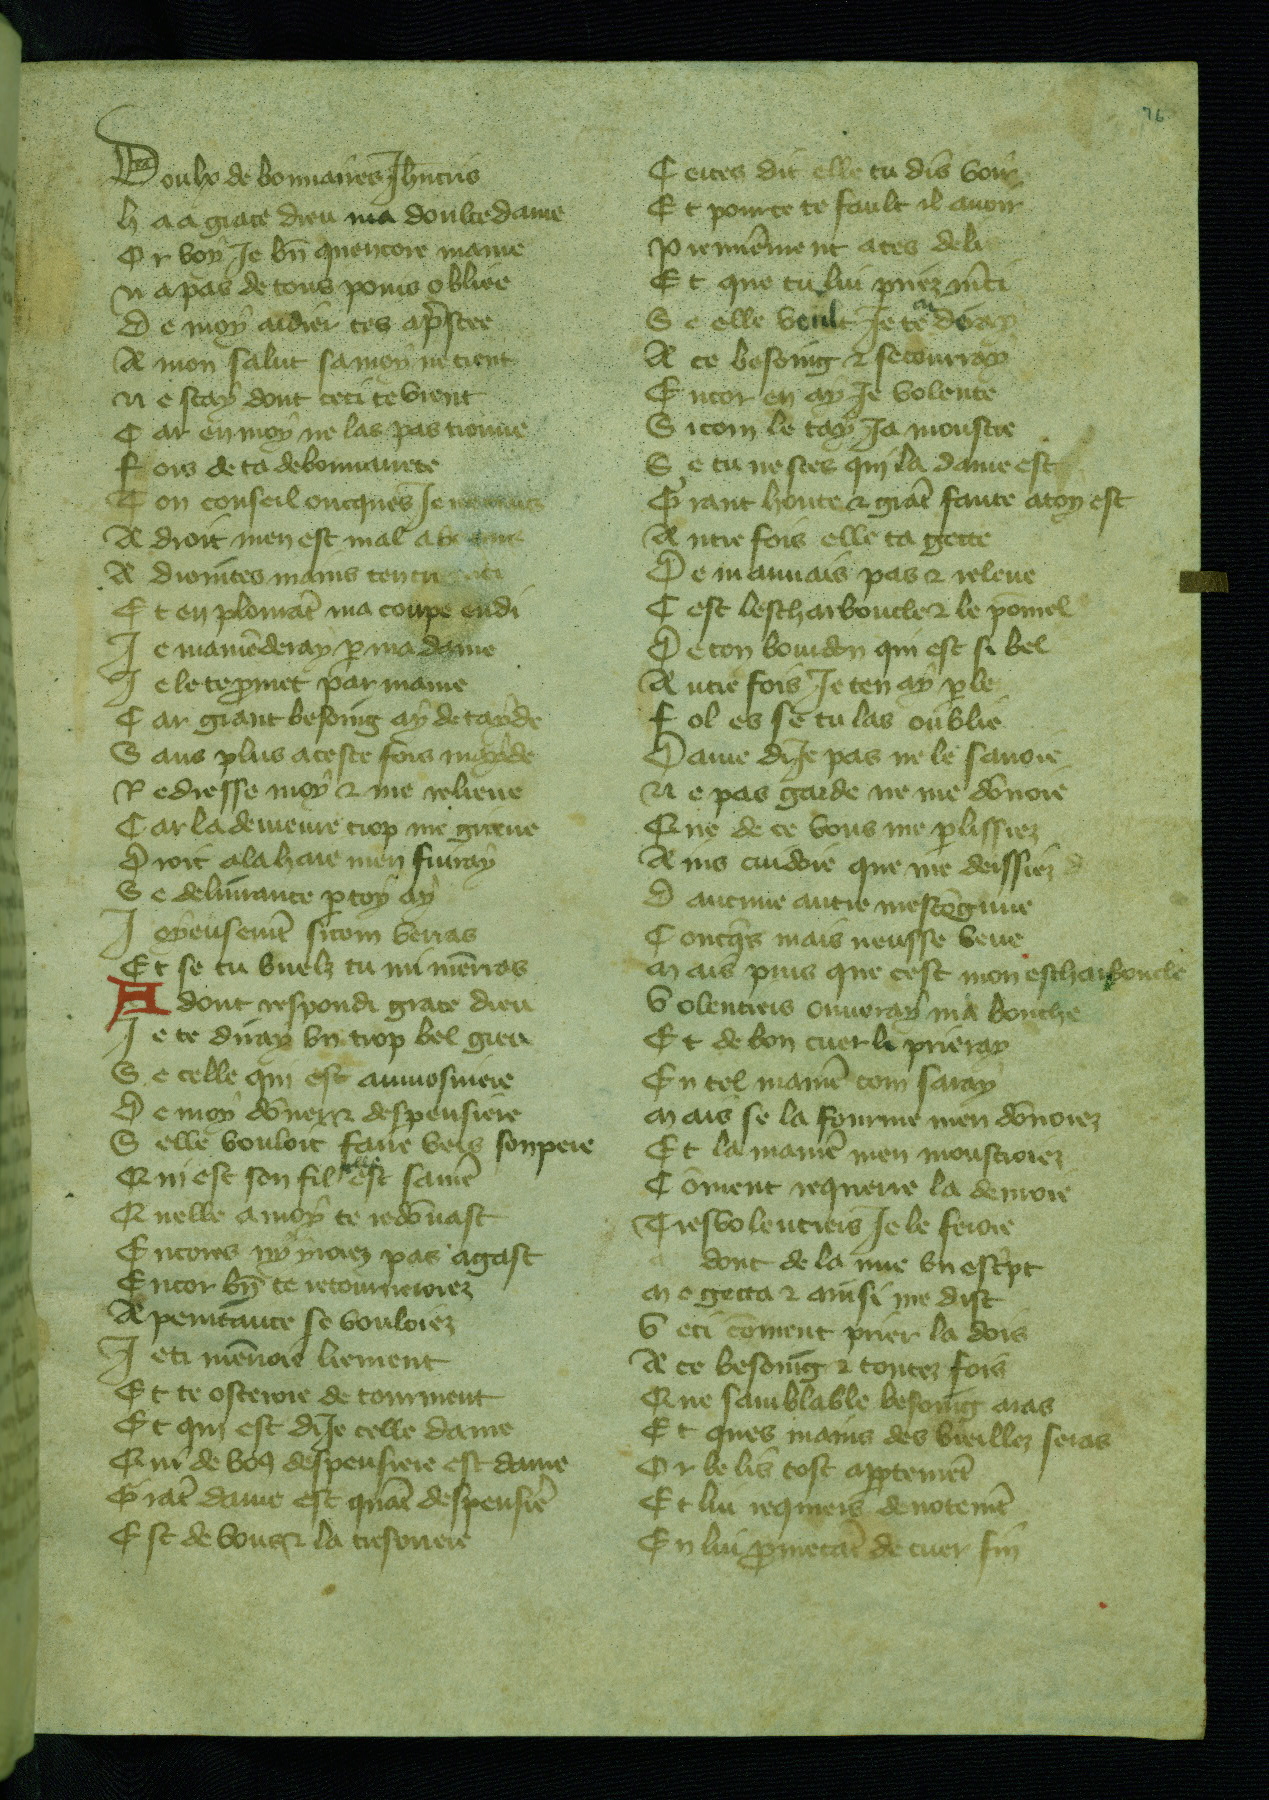 76
Doulx de bonnaires Ihucris
h a a grace dieu ma doulce dame
O r voy Je bn̄ quencore mame
N a pas de tous poins obliee
D e moy aidier tes ap̄stee
A mon salut sa moy ne tient
N e scay dont ceci te vient
C ar en moy ne las pas trouue
F ors de ta debonnairete
T on conseil oncques Je
A droit men est mal
A diointes mains
E t en plorāt ma coupe en di
J e mamēderay p ma dame
J e le te pmet par mame
C ar grant besoing ay de tayde
S ans plus a ceste fois
R edresse moy ⁊ me relieue
C ar la demeure trop me grieue
D roit a la haie men fuiray
S e deliurance p toy ay
J oyeusemēt sicom verras
E t se tu vuelz tu mi mērras
A dont respondi grace dieu
J e te diray vn trop bel gieu
S e celle qui est aumosniere
D e moy dōner ⁊ despensiere
S elle vouloit faire vers son pere
Q ui est son fil elle est samē
Q uelle a moy te redōnast
E ncores ny yroiez pas agast
E ncor bn̄ te retourneroiez
A penitance se vouloiez
J e ti mēroie liement
E t te osteroie de tourment
E t qui est di Je celle dame
Q ui de vo9 despensiere est dame
G rāt dame est quāt despensier̄
E st de vous ⁊ la tresoriere
C ertes dit elle tu dis voir
E t pource te fault il auoir
P remierēment aces
E t que tu lui priez mēci
S e elle veult Je te rēdray
A ce besoing ⁊ secourray
E ncor en ay Je volente
S icom le tay Ja monstre
S e tu ne sces qui la dame est
G rant honte ⁊ grāt faute a toy est
A utre fois elle ta gette
D e mauuais pas ⁊ releue
C est lescharboucle ⁊ le pōmel
D e ton bourdon qui est si bel
A utre fois Je ten ay p̱le
F ol es se tu las oublie
D ame di Je pas ne le sauoie
N e pas garde ne me dōnoie
Q ue de ce vous me p̱lissiez
A ins cuidoie que me deissiez
D aucune autre mescōgnue
C oncq̄s mais neusse veue
M ais puis que cest mon escharboucle
V olentiers ouureray ma bouche
E t de bon cuer li prieray
E n tel maniē com saray
M ais se la fourme men dōnoiez
E t la maniē men monstroiez
C ōment requerre la deuroie
T resvolentiers Je le feroie
a dont de la nue vn esc̄pt
M e getta ⁊ ainsi me dist
V eci cōment prier la dois
A ce besoing ⁊ toutez fois
Q ue samblable besoing aras
E t ques mains des vieillez seras
O r le lis tost apptemēt
E t lui requiers deuotemēt
E n lui pmetāt de cuer fin